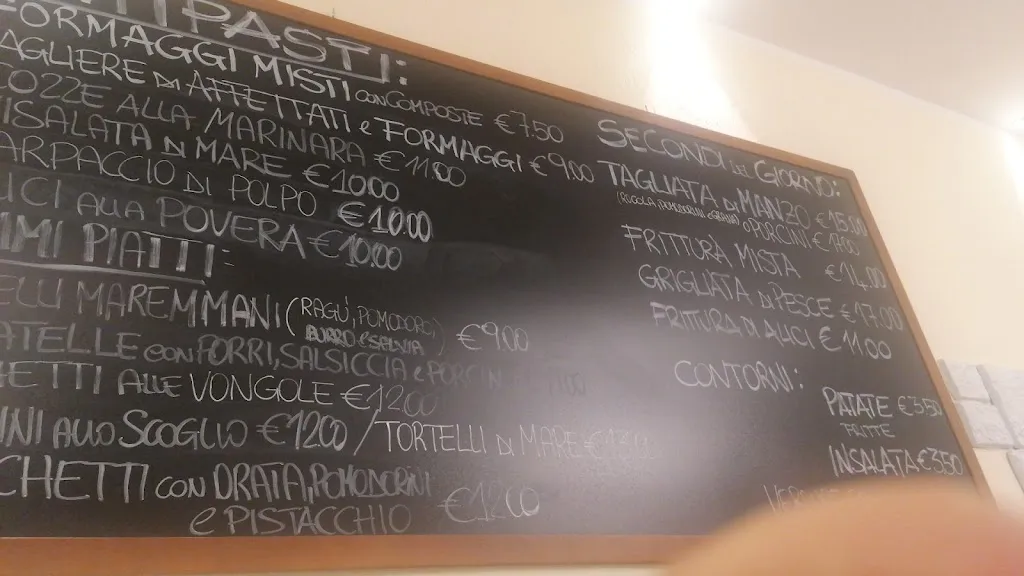 TIPASTI:
FORMAGGI MISTI CON COMPOSTE €7.50
AGLIERE DI AFFETTATI e FORMAGGI €9.00
OZZE ALLA MARINARA €11.00
ISALATA DI MARE €10.00
ARPACCIO DI POLPO €10.00
ICI ALLA POVERA €10.00
IMI PIATTI:
ELLI MAREMMANI (RAGÙ, POMODORO,
BURRO e SALVIA) €9.00
ATELLE CON PORRI, SALSICCIA e PORCINI
HETTI ALLE VONGOLE €12.00
INI ALLO SCOGLIO €12.00 / TORTELLI DI MARE
CHETTI CON ORATA, POMODORINI
e PISTACCHIO €12.00
SECONDI DEL GIORNO:
TAGLIATA DI MANZO €15.00
(RUCOLA, POMODORINI e GRANA) O PORCINI
FRITTURA MISTA €14.00
GRIGLIATA DI PESCE €17.00
FRITTURA DI ALICI €11.00
CONTORNI:
PATATE €3.50
FRITTE
INSALATA €3.50